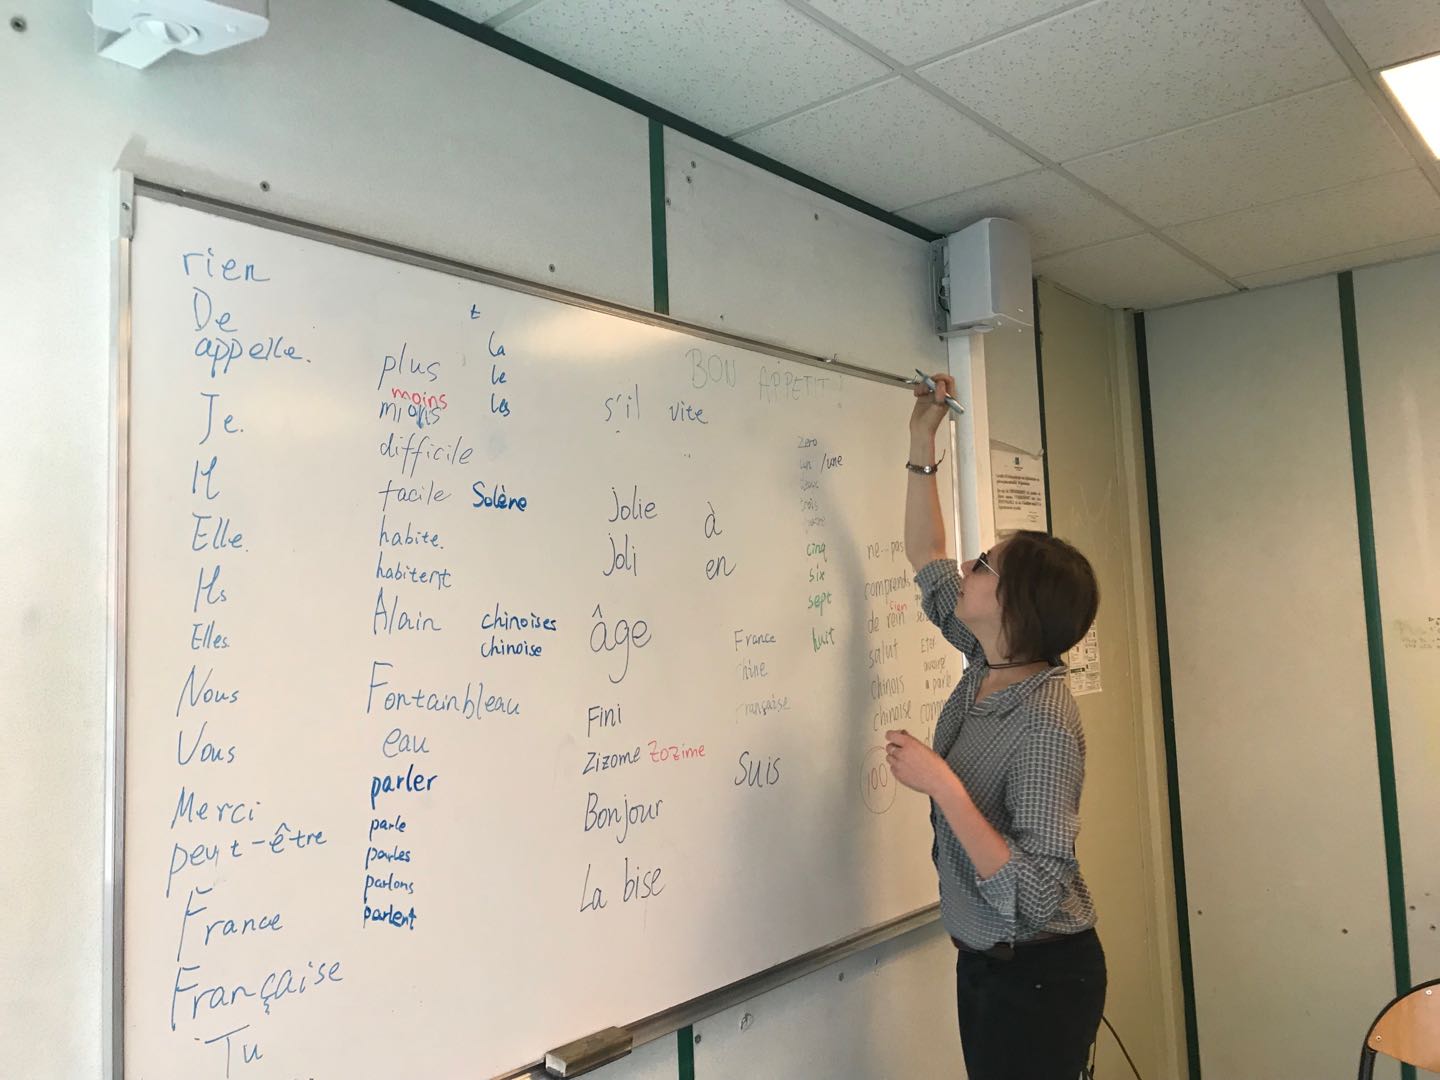 rien
De
appelle.
Je.
Il
Elle.
Ils
Elles.
Nous
Vous
Merci
peut-être
France
Française
Tu
plus
moins
difficile
facile Solène
habite.
habitent
Alain
chinoises
chinoise
Fontainbleau
eau
parler
parle
parles
parlons
parlent
t
la
le
les
s'il vite
Jolie
Joli
à
en
âge
Fini
Zizome Zozime
Bonjour
La bise
BON APPETIT!
France
chine
Française
Suis
zero
un /une
cinq
six
sept
huit
ne...pas
comprends
rien
de rein
salut
chinois
chinoise
100